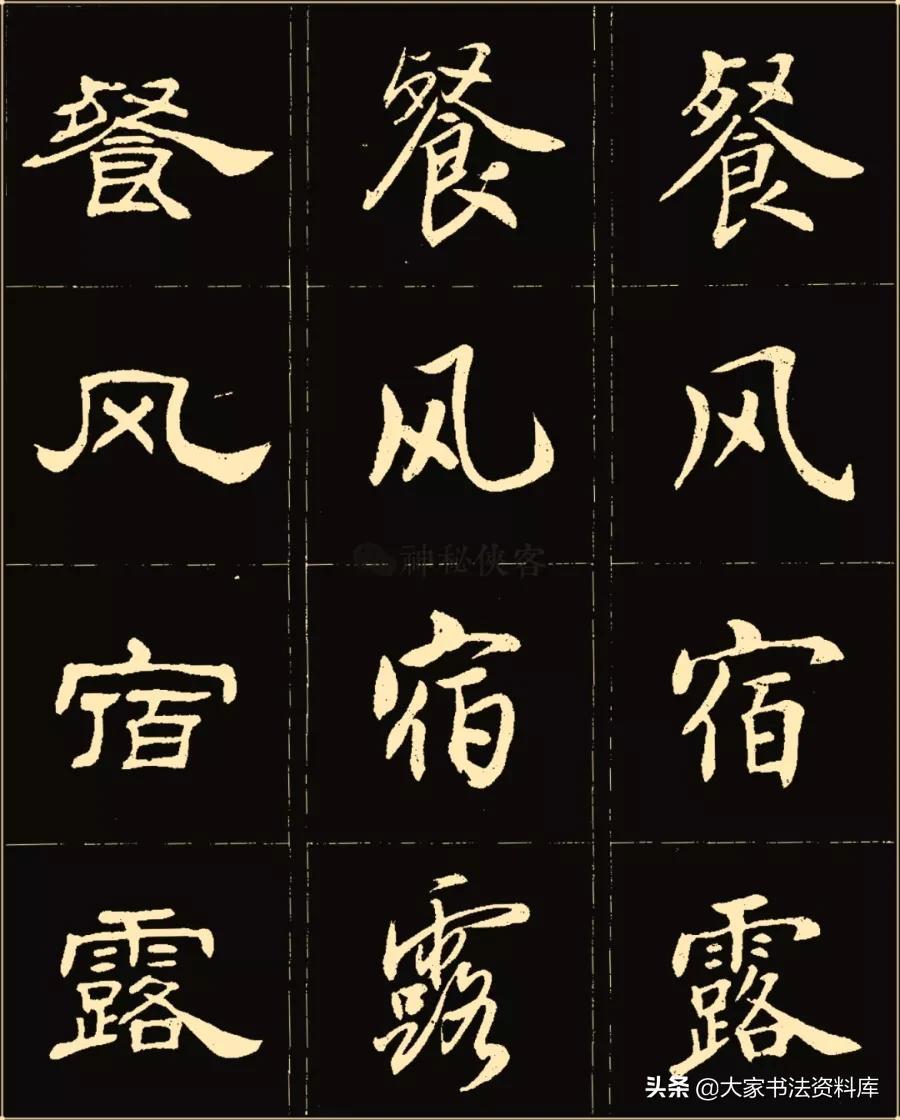 餐 餐 餐
风 风 风
神秘侠客
宿 宿 宿
露 露 露
头条 @大家书法资料库